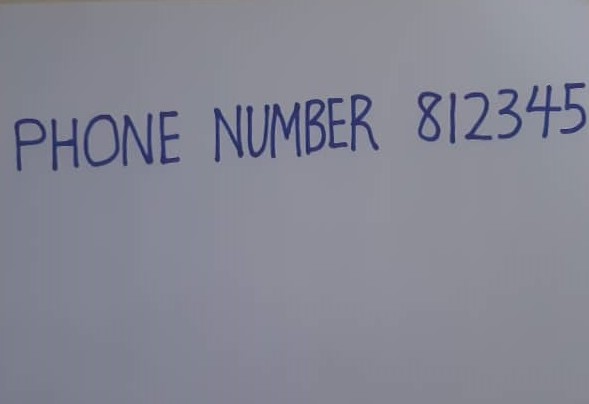 PHONE NUMBER 812345